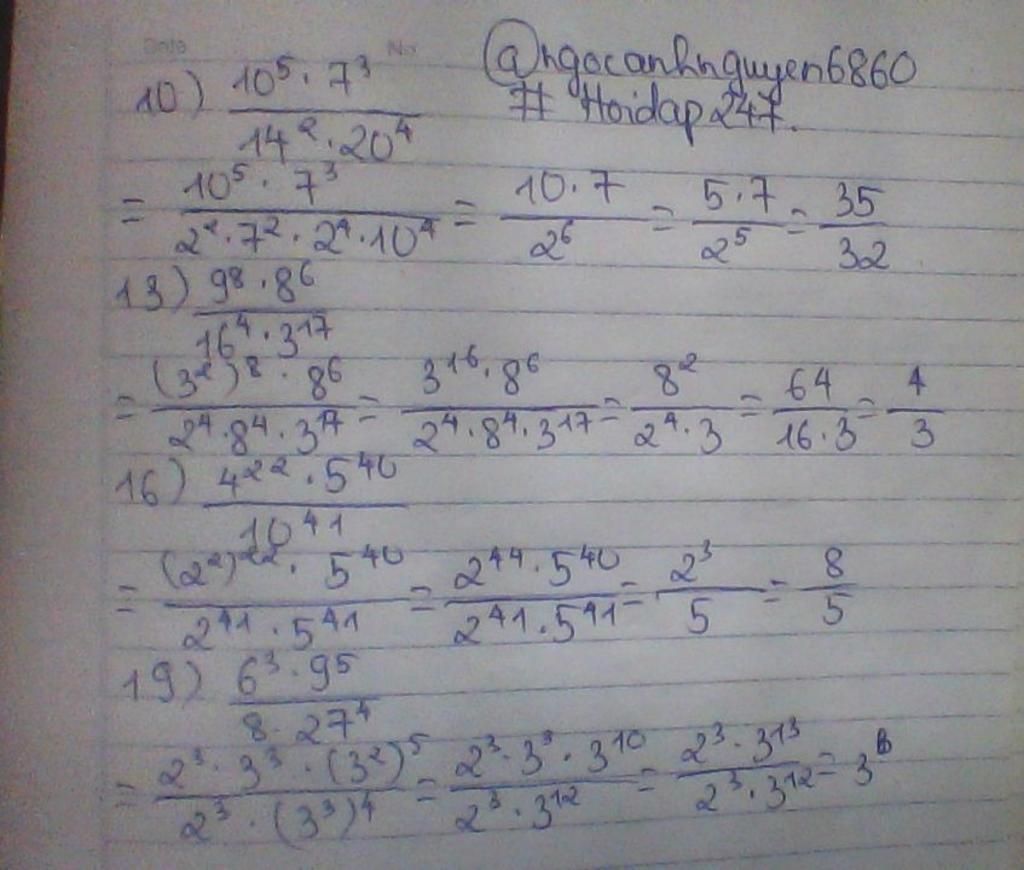 Date No
@ngocanhnguyen6860
# Hoidap247.
10) 10⁵ · 7³ / 14² · 20⁴
= 10⁵ · 7³ / 2² · 7² · 2⁴ · 10⁴ = 10 · 7 / 2⁶ = 5 · 7 / 2⁵ = 35 / 32
13) 9⁸ · 8⁶ / 16⁴ · 3¹⁷
= (3²)⁸ · 8⁶ / 2⁴ · 8⁴ · 3¹⁷ = 3¹⁶ · 8⁶ / 2⁴ · 8⁴ · 3¹⁷ = 8² / 2⁴ · 3 = 64 / 16 · 3 = 4 / 3
16) 4²² · 5⁴⁰ / 10⁴¹
= (2²)²² · 5⁴⁰ / 2⁴¹ · 5⁴¹ = 2⁴⁴ · 5⁴⁰ / 2⁴¹ · 5⁴¹ = 2³ / 5 = 8 / 5
19) 6³ · 9⁵ / 8 · 27⁴
= 2³ · 3³ · (3²)⁵ / 2³ · (3³)⁴ = 2³ · 3³ · 3¹⁰ / 2³ · 3¹² = 2³ · 3¹³ / 2³ · 3¹² = 3